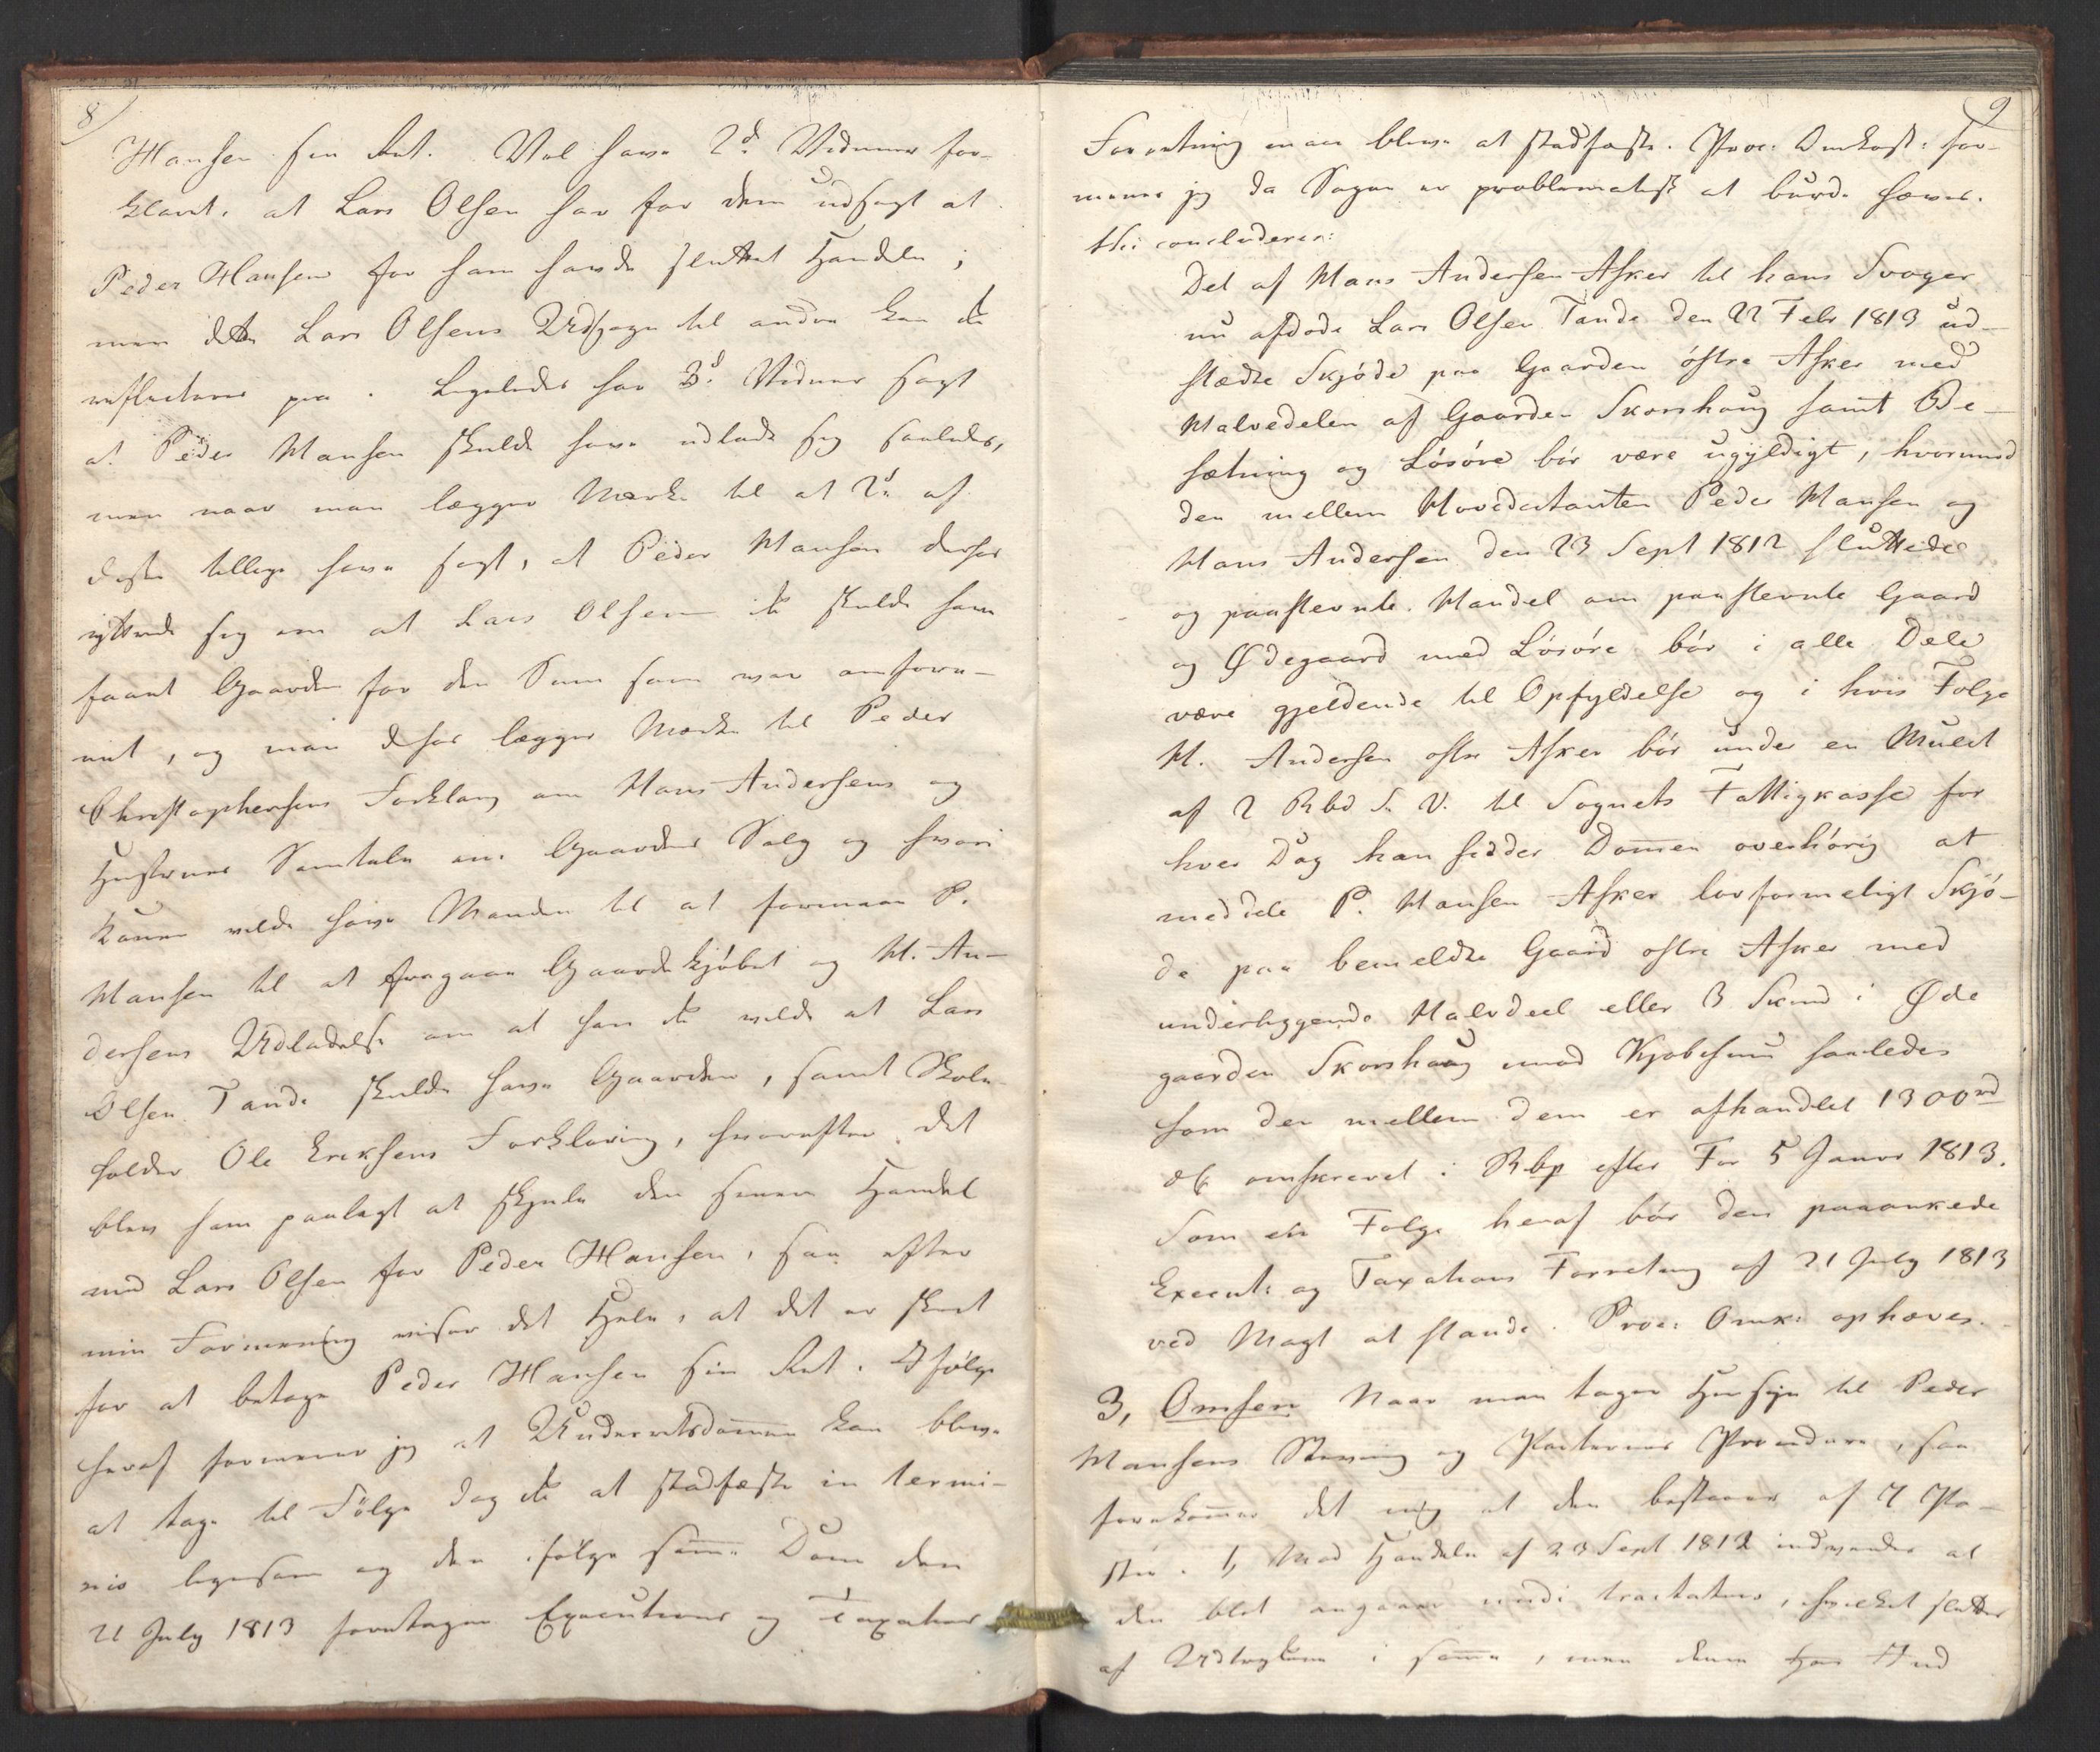 8
Hansen sin Ret. Vel have 2de Vidner for-
klaret, at Lars Olsen har for dem udsagt at
Peder Hansen for ham havde sluttet Handelen;
men dette Lars Olsens Udsagn til andre kan ei
reflecteres paa. Ligeledes har 3de Vidner sagt
at Peder Hansen skulde have udladt sig saaledes,
men naar man lægger Mærke til at 2de af
disse tillige have sagt, at Peder Hansen derhos
yttrede sig om at Lars Olsen ei skulde have
faaet Gaarden for den Sum som var omfore-
net, og man derhos lægger Mærke til Peder
Christophersens Forklaring om Hans Andersens og
Hustrues Samtale om Gaardens Salg og hvori
Konen vilde have Manden til at formaae P.
Hansen til at fragaae Gaardekjøbet og H. An-
dersens Udladelse om at han ei vilde at Lars
Olsen Tande skulde have Gaarden, samt Skole-
holder Ole Eriksens Forklaring, hvorefter det
blev ham paalagt at skjule den senere Handel
med Lars Olsen for Peder Hansen, saa efter
min Formening viser det Hele, at det er skeet
for at betage Peder Hansen sin Ret. Ifølge
heraf formener jeg at Underretsdommen kan blive
at tage til Følge dog ei at stadfæste in termi-
nis ligesom og den ifølge samme Dom den
21 July 1813 foretagne Executions og Taxations
9
Forretning maae blive at stadfæste. Proc: Omkost: for-
mener jeg da Sagen er problematisk at burde hæves.
thi concluderes:
Det af Hans Andersen Asker til hans Svoger
nu afdøde Lars Olsen Tande den 22 Febr 1813 ud-
stædte Skjøde paa Gaarden østre Asker med
Halvedelen af Gaarden Skorshaug samt Be-
sætning og Løsøre bør være ugyldigt, hvorimod
den mellem Hovedcitanten Peder Hansen og
Hans Andersen den 23 Sept 1812 sluttede
og paastevnte Handel om paastevnte Gaard
og Ødegaard med Løsøre bør i alle Dele
være gjeldende til Opfyldelse og i hvis Følge
H. Andersen østre Asker bør under en Mulct
af 2 Rbd S. V. til Sognets Fattigkasse for
hver Dag han sidder Dommen overhørig at
meddele P. Hansen Asker lovformeligt Skjø-
de paa bemeldte Gaard østre Asker med
underliggende Halvdeel eller 3 Skind i Øde
gaarden Skorshaug imod Kjøbesum saaledes
som der mellem dem er afhandlet 1300 rd
DC omskrevet i Rbp efter For 5 Januar 1813.
Som en Følge heraf bør den paaankede
Execut: og Taxations Forretning af 21 July 1813
ved Magt at stande. Proc: Omk: ophæves.
3, Omsen Naar man tager Hensyn til Peder
Hansens Stevning og Parternes Procedure, saa
forekommer det mig at den bestaaer af 7 Po-
ster. 1, Mod Handelen af 23 Sept 1812 indvendes at
den blot angaaer modi tractatus, hvilket sluttes
af Udtrykkene i samme, men denne Ind